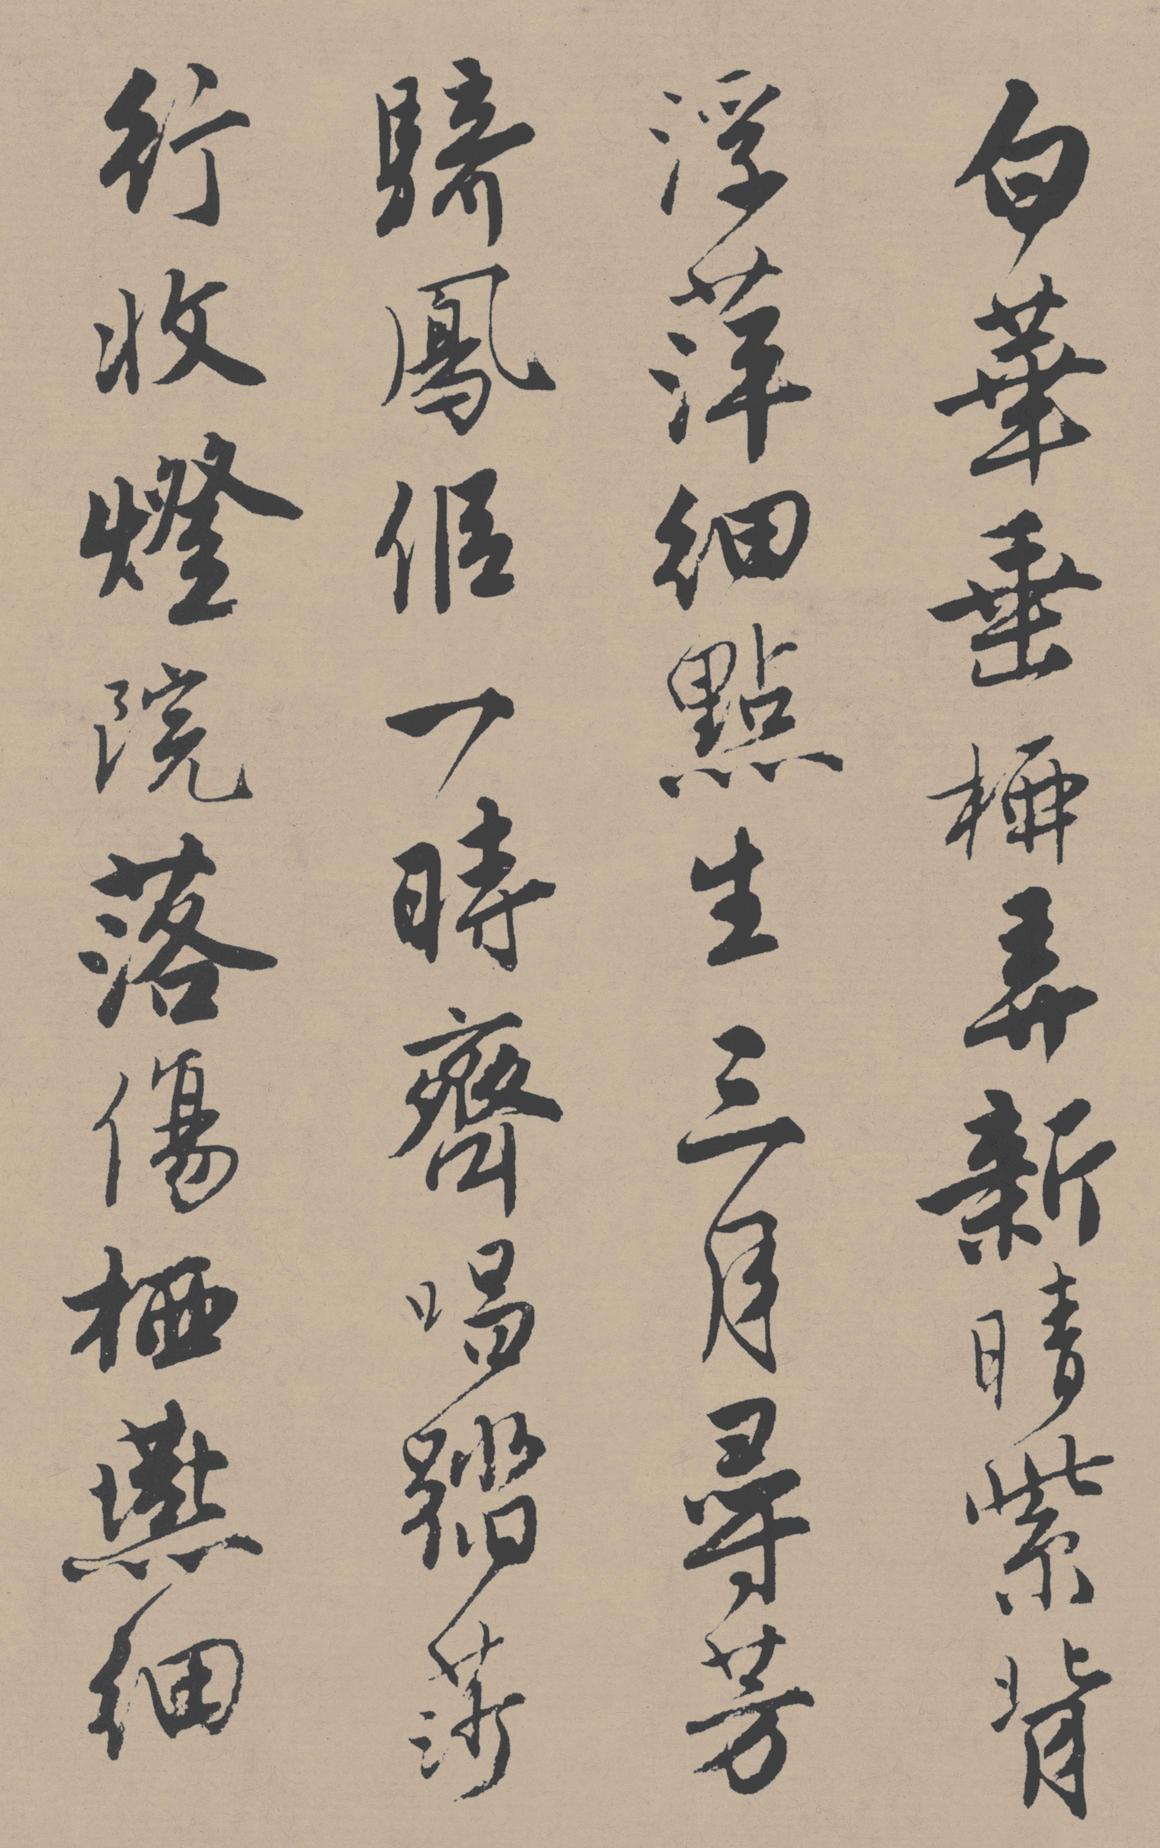 白華垂柵弄新晴紫背
浮萍細點生三月尋芳
騎鳳侶一時齊唱踏莎
行收燈院落傷栖燕細